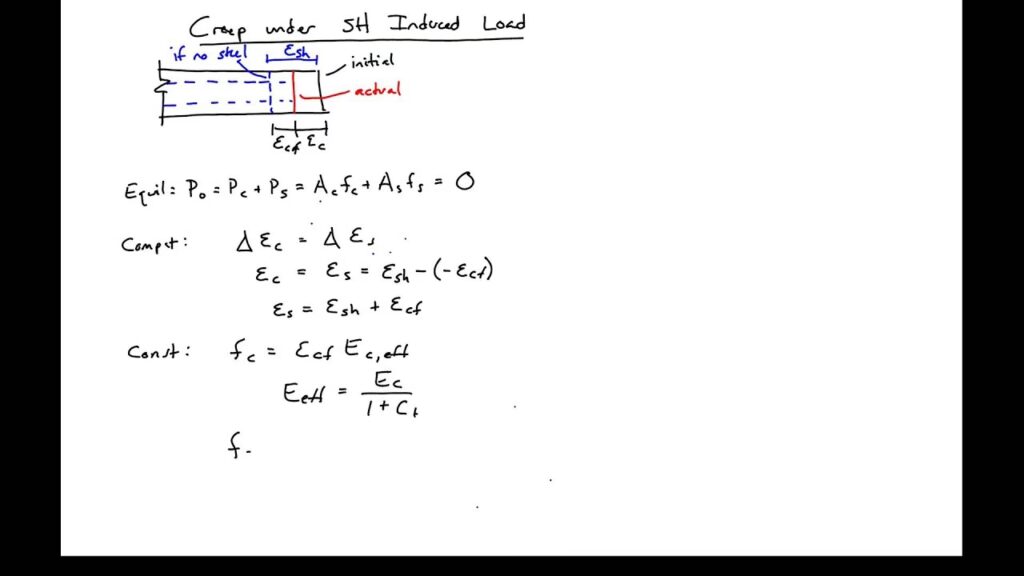 Creep under SH Induced Load
if no steel εsh initial
actual
εcf εc
Equil: P₀ = Pc + Ps = Ac fc + As fs = 0
Compt: Δ εc = Δ εs
εc = εs = εsh - (-εcf)
εs = εsh + εcf
Const: fc = εcf Ec,eff
Eeff = Ec / 1 + Ct
f